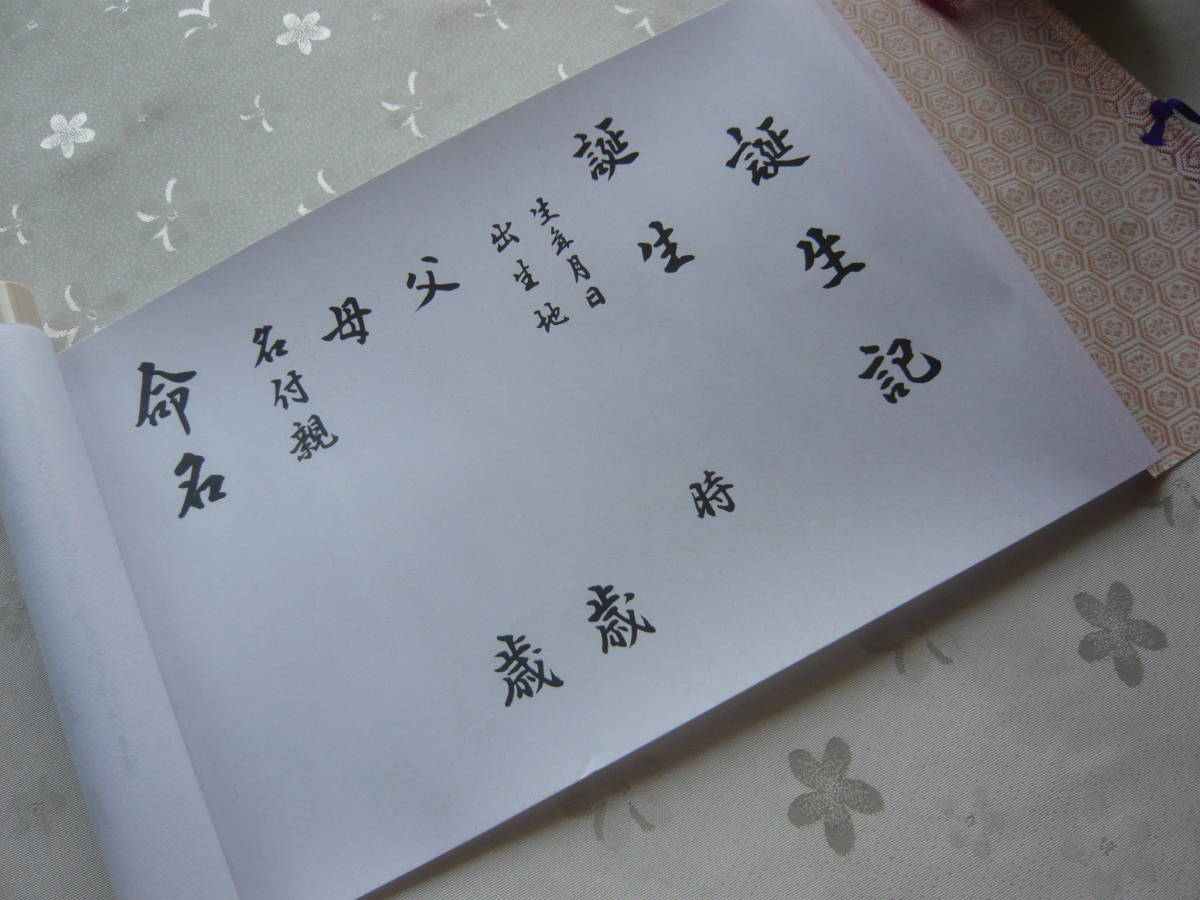 誕生記
誕生 時
生年月日
出生地
父 歳
母 歳
名付親
命名